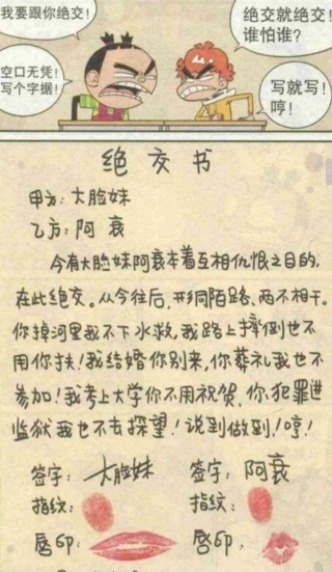 我要跟你绝交!
绝交就绝交!
谁怕谁?
空口无凭!
写个字据!
写就写!
哼!
绝交书
甲方:大脸妹
乙方:阿衰
今有大脸妹阿衰本着互相仇恨之目的,
在此绝交。从今往后,形同陌路、两不相干。
你掉河里我不下水救,我路上摔倒也不
用你扶!我结婚你别来,你葬礼我也不
参加!我考上大学你不用祝贺,你犯罪进
监狱我也不去探望!说到做到!哼!
签字:大脸妹 签字:阿衰
指纹: 指纹:
唇印: 唇印: